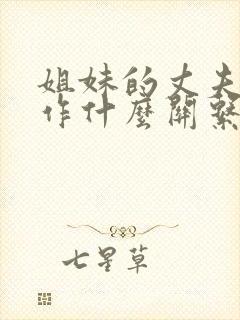 姐妹的丈夫
作什麼關繫
七星草